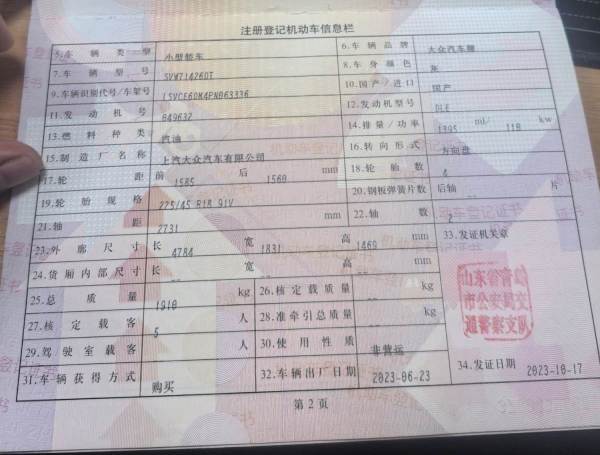 注册登记机动车信息栏
5.车辆类型 小型轿车 6.车辆品牌 大众汽车牌
7.车辆型号 SVW71426DT 8.车身颜色 灰
9.车辆识别代号/车架号 10.国产/进口 国产
11.发动机号 849632 12.发动机型号 DLE
13.燃料种类 汽油 14.排量/功率 1395 ml/ 110 kw
15.制造厂名称 上汽大众汽车有限公司 16.转向形式 方向盘
17.轮距 前 1585 后 1560 mm 18.轮胎数 4
19.轮胎规格 225/45 R18 91V 20.钢板弹簧片数 后轴 片
21.轴距 2731 mm 22.轴数 2
23.外廓尺寸 长 4784 宽 1831 高 1469 mm 33.发证机关章
24.货厢内部尺寸 长 -- 宽 -- 高 -- mm
山东省青岛
市公安局交
通警察支队
25.总质量 1910 kg 26.核定载质量 -- kg
27.核定载客 5 人 28.准牵引总质量 -- kg
29.驾驶室载客 -- 人 30.使用性质 非营运
31.车辆获得方式 购买 32.车辆出厂日期 2023-06-23 34.发证日期 2023-10-17
第2页